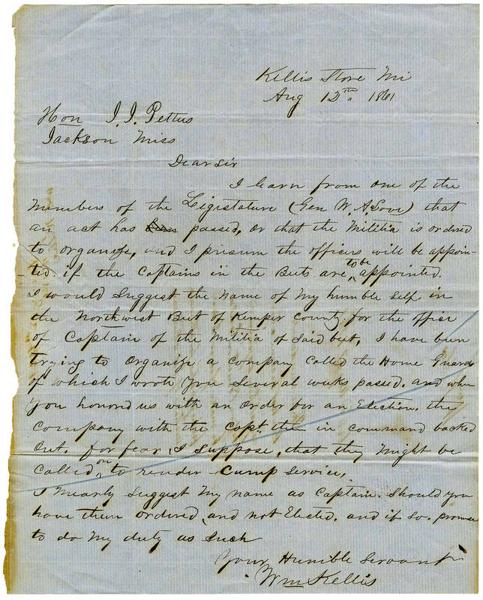 Kellis Store Mi
Aug 12th 1861
Hon J. J. Pettus
Jackson Miss
Dear Sir
I learn from one of the
members of the Legistature (Gen W. A Love) that
an act has been passed, or that the Militia is ordered
to organize, and I prisum the officers will be appoin-
ted. if the Captains in the Beets are to be appointed
I would suggest the name of my humble self in
the Northwest Beet of Kemper County for the office
of Captain of the militia of Said beet, I have been
trying to Organize a company Called the Home Guards
of which I wrote you several weeks passed. and when
you honord us with an order for an Election. the
Company with the Capt then in command backed
out. for fear I suppose, that they might be
Called on to render Camp service,
I mearly suggest my name as Captain. should you
have them ordered, and not Elected. and if so. promise
to do my duty as such
Your Humble Servant
Wm Kellis